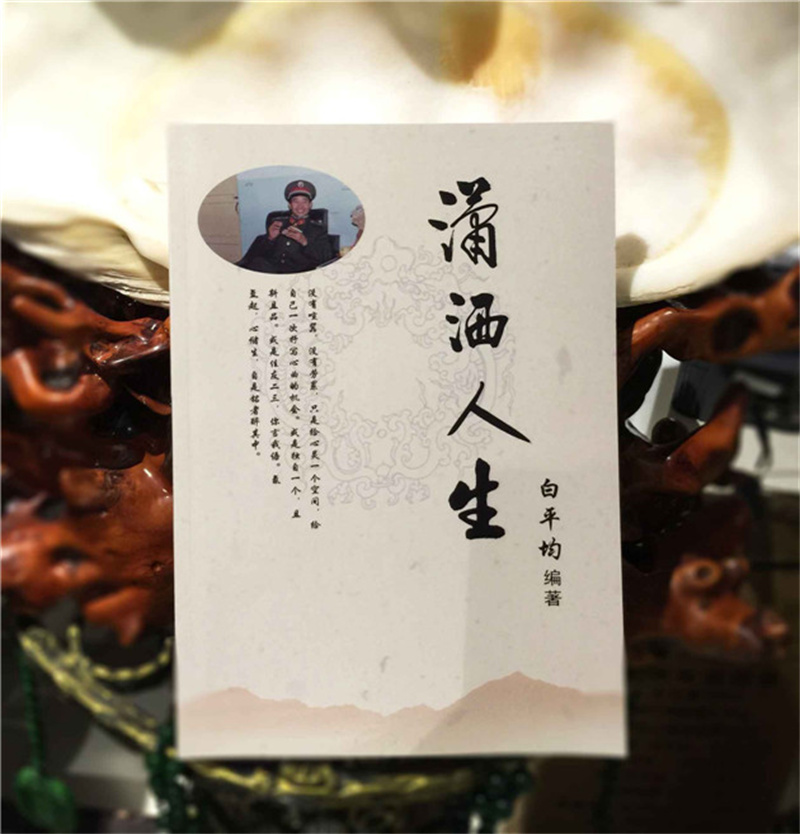 潇洒人生
白平均 编著
没有喧嚣，没有劳累，只是给心灵一个空间，给
自己一次抒写心曲的机会。或是独自一个，且
斟且品。或是佳友二三，你言我语。氤
氲起，心绪生，自是铭者醉其中。